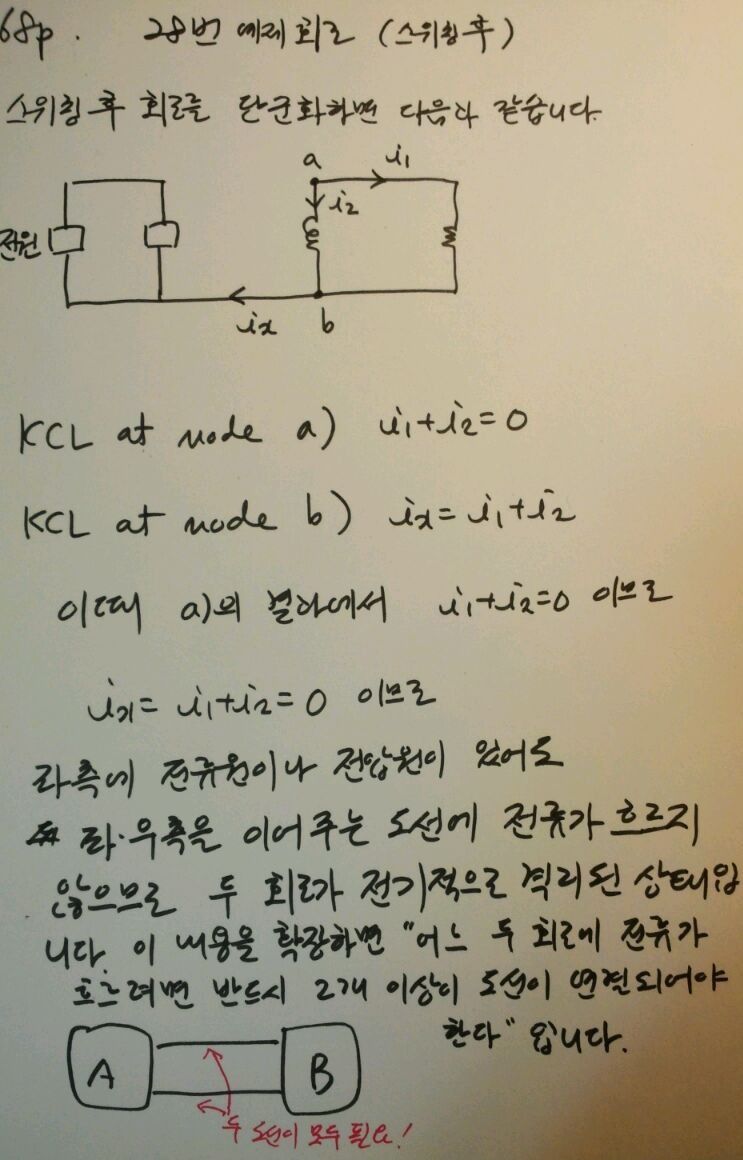 68p. 28번 예제 회로 (스위칭 후)
스위칭 후 회로를 단순화하면 다음과 같습니다.
a i₁
i₂
전원
ix b
KCL at node a) i₁+i₂=0
KCL at node b) ix= i₁+i₂
이때 a)의 결과에서 i₁+i₂=0 이므로
ix= i₁+i₂= 0 이므로
좌측에 전류원이나 전압원이 있어도
좌·우측을 이어주는 도선에 전류가 흐르지
않으므로 두 회로가 전기적으로 격리된 상태입
니다. 이 내용을 확장하면 "어느 두 회로에 전류가
흐르려면 반드시 2개 이상의 도선이 연결되어야
한다" 입니다.
A B
두 도선이 모두 필요!